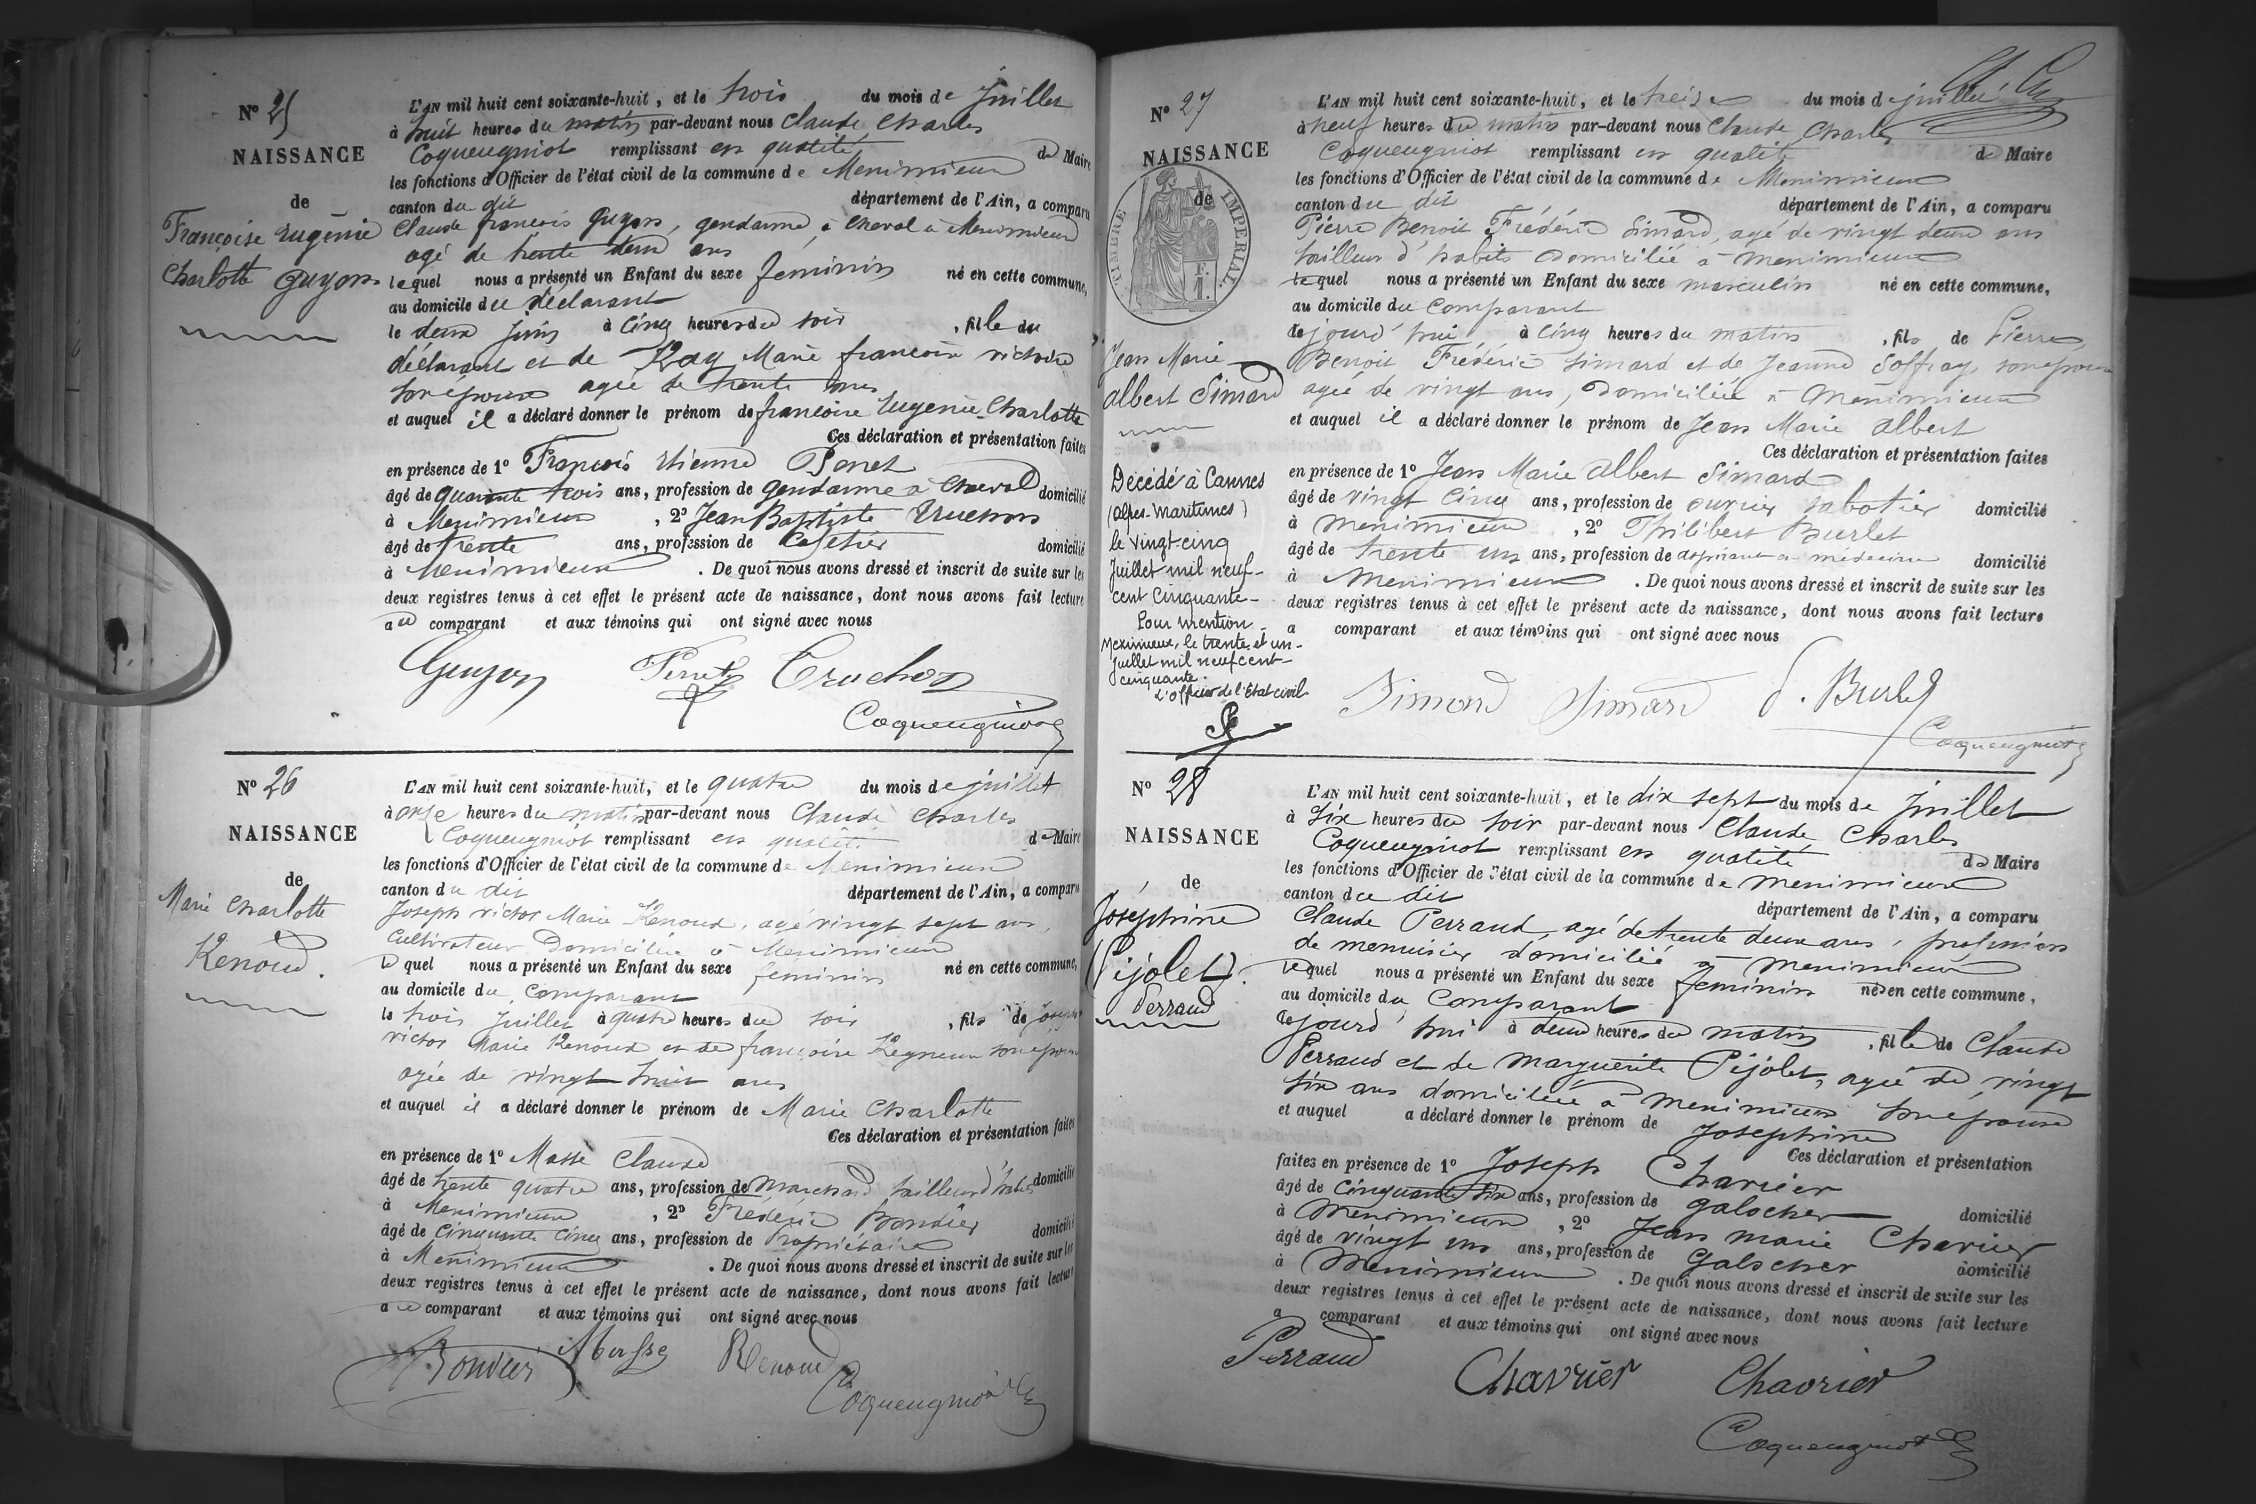 N° 25
NAISSANCE
de
Françoise Eugénie
Charlotte Guyon
L'AN mil huit cent soixante-huit, et le trois du mois de Juillet
à huit heures du matin par-devant nous Claude Charles
Coqueugniot remplissant en qualité de Maire
les fonctions d'Officier de l'état civil de la commune de Meximieux
canton du dit département de l'Ain, a comparu
Claude françois Guyon, gendarme à cheval à Meximieux
agé de trente deux ans
lequel nous a présenté un Enfant du sexe feminin né en cette commune,
au domicile du déclarant
le deux Juin à cinq heures du soir, fille du
déclarant et de Ray Marie françoise victoire
son épouse agée de trente ans
et auquel il a déclaré donner le prénom de françoise Eugenie Charlotte
Ces déclaration et présentation faites
en présence de 1° François Etienne Perret
âgé de quarante trois ans, profession de gendarme à cheval domicilié
à Meximieux, 2° Jean Baptiste Cruchon
âgé de trente ans, profession de cafetier domicilié
à Meximieux. De quoi nous avons dressé et inscrit de suite sur les
deux registres tenus à cet effet le présent acte de naissance, dont nous avons fait lecture
au comparant et aux témoins qui ont signé avec nous
Guyon Perret Cruchon
Coqueugniot
N° 26
NAISSANCE
de
Marie Charlotte
Renoud.
L'AN mil huit cent soixante-huit, et le quatre du mois de juillet
à onze heures du matin par-devant nous Claude Charles
Coqueugniot remplissant en qualité de Maire
les fonctions d'Officier de l'état civil de la commune de Meximieux
canton du dit département de l'Ain, a comparu
Joseph victor Marie Renoud, agé vingt sept ans,
Cultivateur Domicilié à Meximieux
lequel nous a présenté un Enfant du sexe feminin né en cette commune,
au domicile du comparant
le trois Juillet à quatre heures du soir, fils de Joseph
victor Marie Renoud et de françoise Reyneux son épouse
agée de vingt huit ans
et auquel il a déclaré donner le prénom de Marie Charlotte
Ces déclaration et présentation faites
en présence de 1° Masse Claude
âgé de trente quatre ans, profession de Marchand tailleur d'habits domicilié
à Meximieux, 2° Frédéric Bouvier
âgé de cinquante cinq ans, profession de Propriétaire domicilié
à Meximieux. De quoi nous avons dressé et inscrit de suite sur les
deux registres tenus à cet effet le présent acte de naissance, dont nous avons fait lecture
a ce comparant et aux témoins qui ont signé avec nous
Bouvier Masse Renoud
Coqueugniot
N° 27
NAISSANCE
de
TIMBRE IMPERIAL
Jean Marie
Albert Simard
Décédé à Cannes
(Alpes-Maritimes)
le vingt-cinq
Juillet mil neuf-
cent Cinquante-
Pour mention
Meximieux, le trente et un-
Juillet mil neuf cent-
cinquante.
L'Officier de l'Etat civil
L'AN mil huit cent soixante-huit, et le treize du mois de juillet
à neuf heures du matin par-devant nous Claude Charles
Coqueugniot remplissant en qualité de Maire
les fonctions d'Officier de l'état civil de la commune de Meximieux
canton du dit département de l'Ain, a comparu
Pierre Benoit Frédéric Simard, agé de vingt deux ans
tailleur d'habits domicilié à Meximieux
lequel nous a présenté un Enfant du sexe masculin né en cette commune,
au domicile du comparant
cejourd'hui à cinq heures du matin, fils de Pierre
Benoit Frédéric Simard et de Jeanne Soffray, son épouse
agée de vingt ans, domiciliée à Meximieux
et auquel il a déclaré donner le prénom de Jean Marie Albert
Ces déclaration et présentation faites
en présence de 1° Jean Marie Albert Simard
âgé de vingt cinq ans, profession de ouvrier sabotier domicilié
à Meximieux, 2° Philibert Burlet
âgé de trente un ans, profession de aspirant en médecine domicilié
à Meximieux. De quoi nous avons dressé et inscrit de suite sur les
deux registres tenus à cet effet le présent acte de naissance, dont nous avons fait lecture
a comparant et aux témoins qui ont signé avec nous
Simard Simard P. Burlet
Coqueugniot
N° 28
NAISSANCE
de
Joséphine
(Pijolet).
Perraud
L'AN mil huit cent soixante-huit, et le dix sept du mois de Juillet
à six heures du soir par-devant nous Claude Charles
Coqueugniot remplissant en qualité de Maire
les fonctions d'Officier de l'état civil de la commune de Meximieux
canton du dit département de l'Ain, a comparu
Claude Perraud, agé de trente deux ans, profession
de menuisier domicilié à Meximieux
lequel nous a présenté un Enfant du sexe feminin née en cette commune,
au domicile du comparant
cejourd'hui à deux heures du matin, fille de Claude
Perraud et de Marguerite Pijolet, agée de vingt
six ans domiciliée à Meximieux son épouse
et auquel a déclaré donner le prénom de Joséphine
Ces déclaration et présentation
faites en présence de 1° Joseph Chavrier
âgé de cinquante six ans, profession de galocher domicilié
à Meximieux, 2° Jean Marie Chavrier
âgé de vingt un ans, profession de galocher domicilié
à Meximieux. De quoi nous avons dressé et inscrit de suite sur les
deux registres tenus à cet effet le présent acte de naissance, dont nous avons fait lecture
a comparant et aux témoins qui ont signé avec nous
Perraud Chavrier Chavrier
Coqueugniot